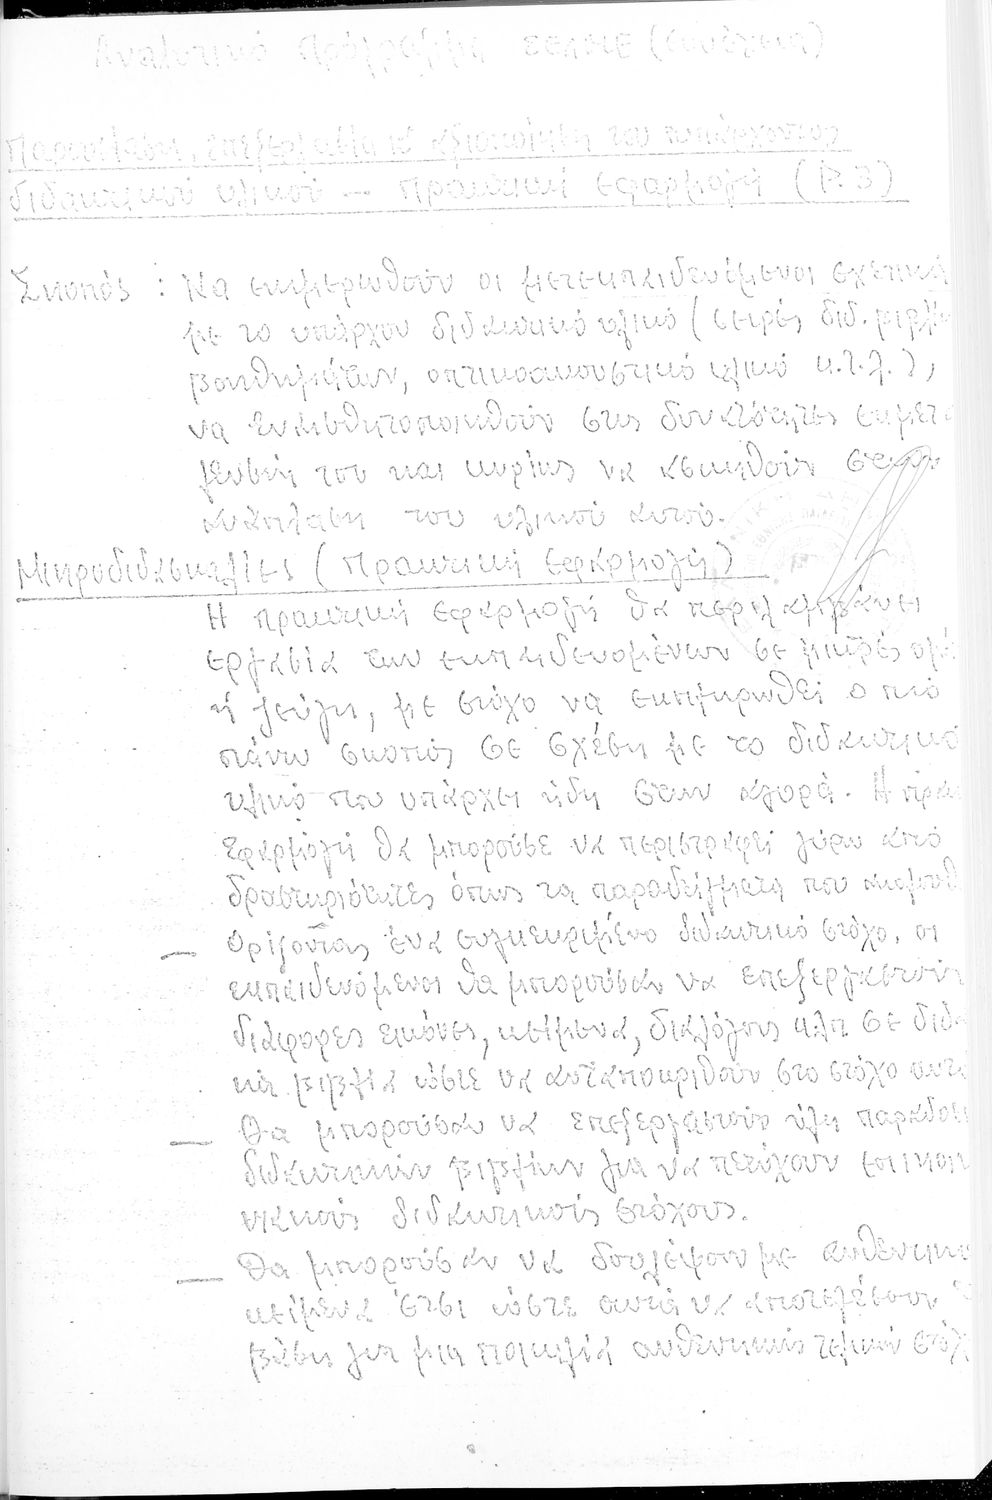 Αναλυτικό Πρόγραμμα ΣΕΛΜΕ (συνέχεια)
Παρουσίαση, επεξεργασία κ αξιοποίηση του υπάρχοντος
διδακτικού υλικού — Πρακτική εφαρμογή (Ρ. 3)
Σκοπός : Να ενημερωθούν οι μετεκπαιδευόμενοι σχετικά
με το υπάρχον διδακτικό υλικό (σειρές διδ. βιβλίων
βοηθημάτων, οπτικοακουστικό υλικό κ.τ.λ.),
να ευαισθητοποιηθούν στις δυνατότητες εκμετ
λευσή του και κυρίως να ασκηθούν στην
ανάπλαση του υλικού αυτού.
Μικροδιδασκαλίες (Πρακτική εφαρμογή)
Η πρακτική εφαρμογή θα περιλαμβάνει
εργασία των εκπαιδευομένων σε μικρές ομά
ή ζεύγη, με στόχο να εκπληρωθεί ο πιό
πάνω σκοπός σε σχέση με το διδακτικό
υλικό που υπάρχει ήδη στην αγορά. Η πρακ
εφαρμογή θα μπορούσε να περιστραφεί γύρω από
δραστηριότητες όπως τα παραδείγματα που ακολουθ
— Ορίζοντας ένα συγκεκριμένο διδακτικό στόχο, οι
εκπαιδευόμενοι θα μπορούσαν να επεξεργαστούν
διάφορες εικόνες, κείμενα, διαλόγους κλπ σε διδα
κά βιβλία ώστε να ανταποκριθούν στο στόχο αυτό
— Θα μπορούσαν να επεξεργαστούν ύλη παραδοσι
διδακτικών βιβλίων για να πετύχουν επικοι
νιακούς διδακτικούς στόχους.
— Θα μπορούσαν να δουλέψουν με αυθεντικά
κείμενα έτσι ώστε αυτά να αποτελέσουν
βάση για μια ποικιλία αυθεντικών τελικών στόχ